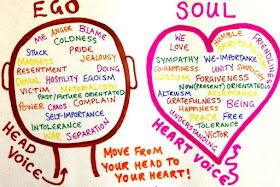 EGO
ME ANGER BLAME
COLDNESS
STUCK PRIDE
MADNESS JEALOUSY
RESENTMENT DOING
DENIAL HOSTILITY EGOISM
VICTIM MATERIALISTIC
PAST/FUTURE ORIENTATED
POWER CHAOS COMPLAIN
SELF-IMPORTANCE
INTOLERANCE
WAR SEPARATION
HEAD VOICE
SOUL
WE HUMBLE FRIENDLINESS
LOVE SPIRITUALISM
SYMPATHY WE-IMPORTANCE
CO-HAPPINESS UNITY SIMPLICITY
WISDOM FORGIVENESS
NOW(PRESENT) ORIENTATED
ALTRUISM ACCEPTANCE
GRATEFULNESS
HAPPINESS BEING
PEACE FREE
UNDERSTANDING TOLERANCE
VICTOR
HEART VOICE
MOVE FROM
YOUR HEAD TO
YOUR HEART!